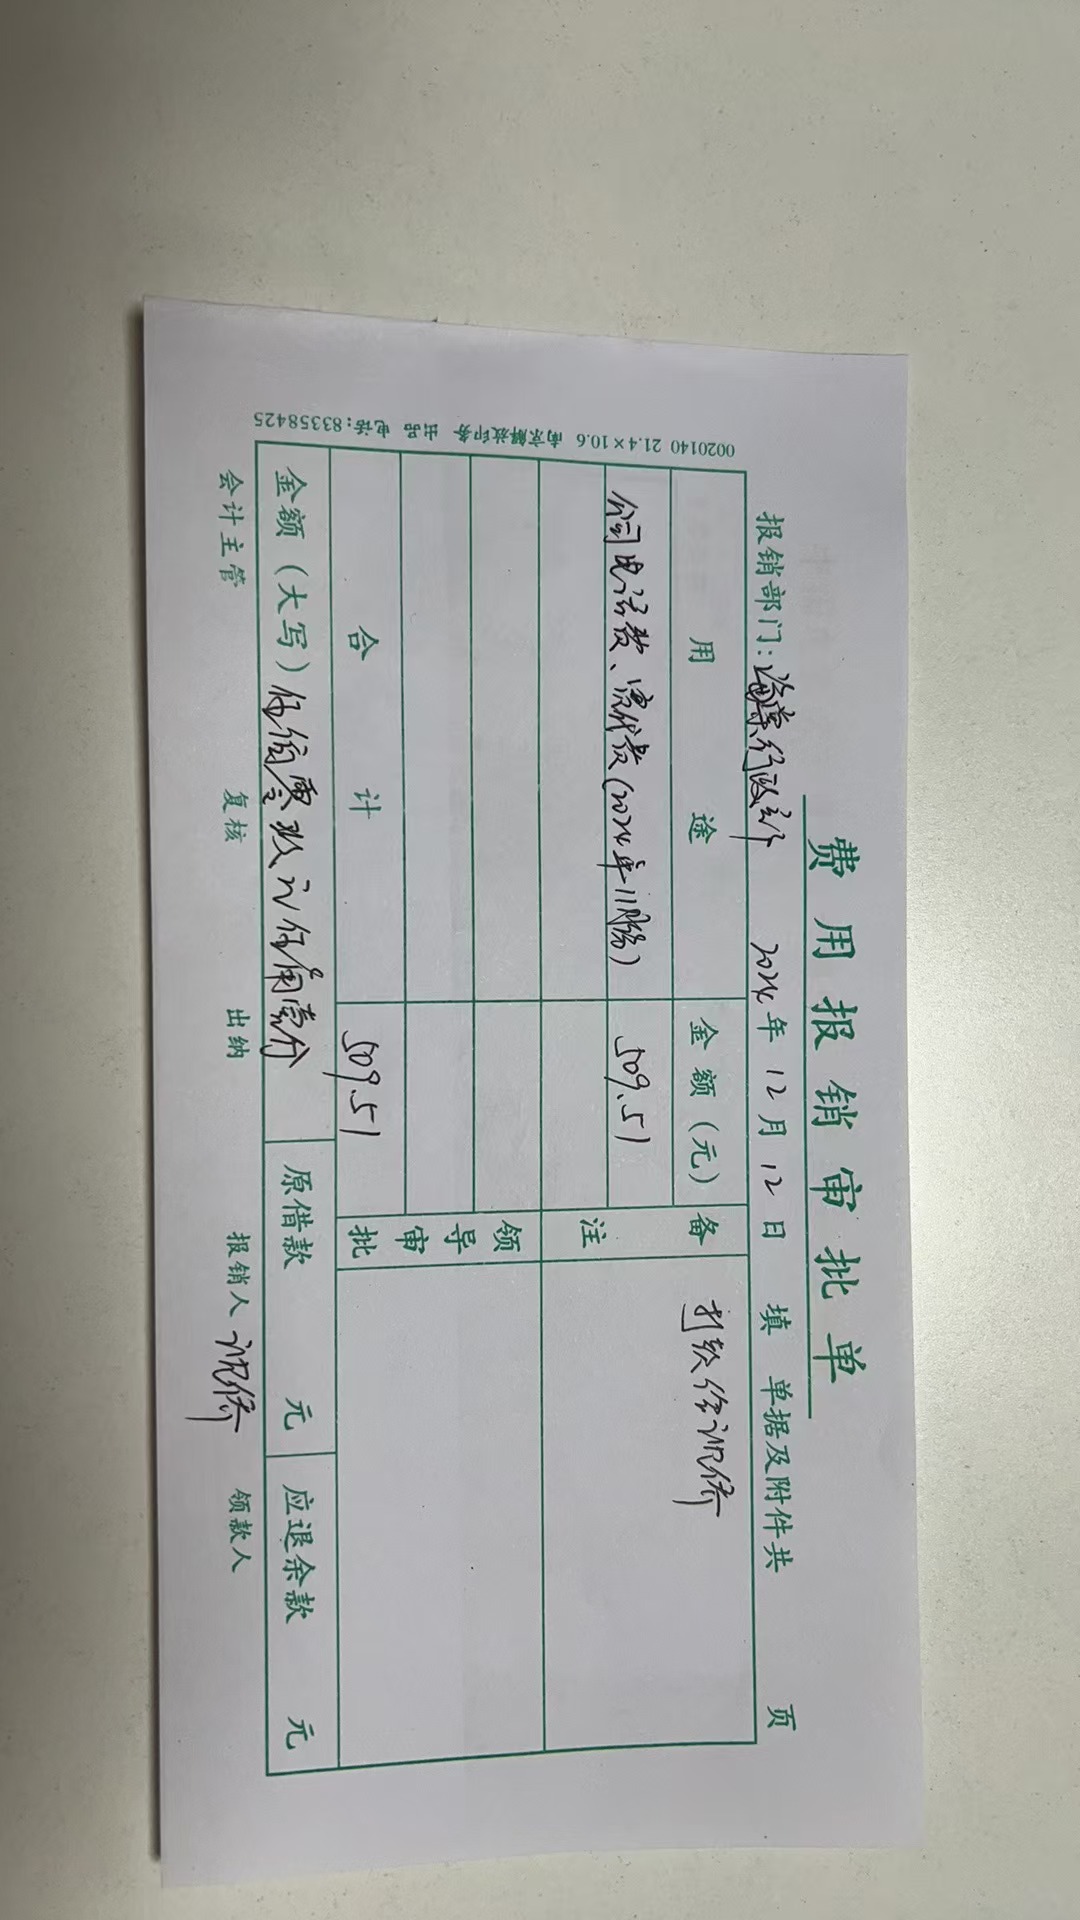 费用报销审批单
报销部门:海棠行政部 2024年12月12日 填 单据及附件共 页
用途 金额(元) 备注 打款给祝侨
公司电话费、宽代费(2024年11月份) 509.51
领导审批
合计 509.51
金额(大写)伍佰零玖元伍角壹分 原借款 元 应退余款 元
会计主管 复核 出纳 报销人 祝侨 领款人
0020140 21.4×10.6 南京解放印务 出品 电话:83358425